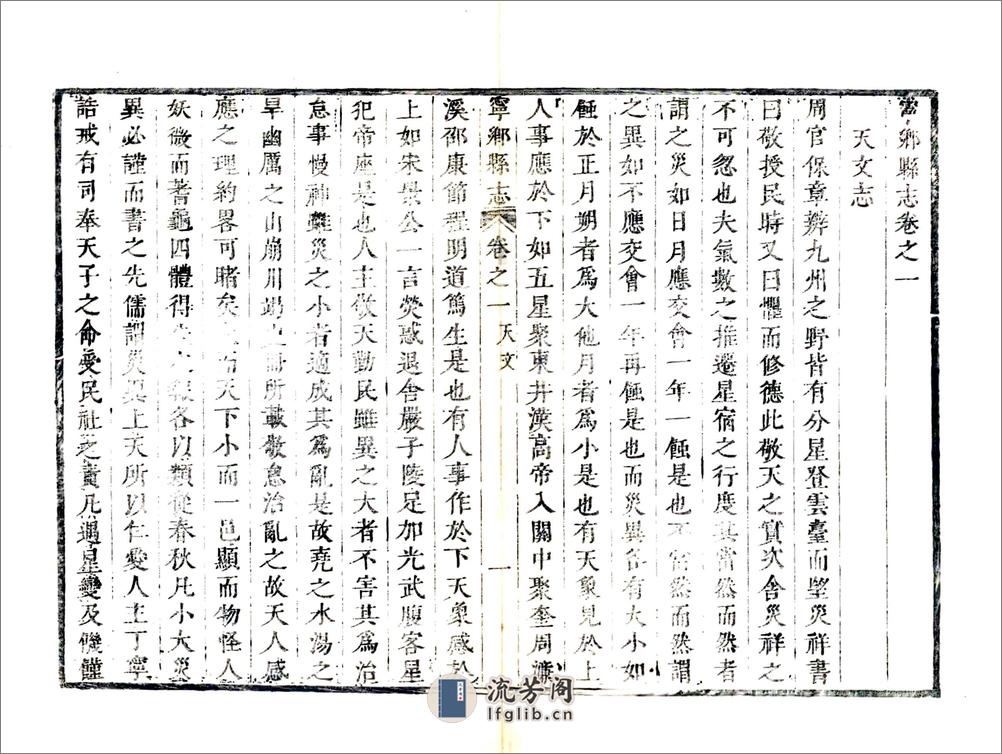 寧鄉縣志卷之一
天文志
周官保章辨九州之野皆有分星登雲臺而望災祥書
曰敬授民時又曰懼而修德此敬天之實次舍災祥之
不可忽也夫氣數之推遷星宿之行度其當然而然者
謂之災如日月應交會一年一蝕是也不當然而然謂
之異如不應交會一年再蝕是也而災異各有大小如
蝕於正月朔者爲大他月者爲小是也有天象見於上
人事應於下如五星聚東井漢高帝入關中聚奎周濂
寧鄉縣志 卷之一 天文 一
溪邵康節程明道篤生是也有人事作於下天象感於
上如宋景公一言熒惑退舍嚴子陵足加光武腹客星
犯帝座是也人主敬天勤民雖異之大者不害其爲治
怠事慢神雖災之小者適成其爲亂是故堯之水湯之
旱幽厲之山崩川竭史冊所載敬怠治亂之故天人感
應之理約畧可睹矣 天下小而一邑顯而物怪人
妖微而蓍龜四體得失之報各以類從春秋凡小大災
異必謹而書之先儒謂災異上天所以仁愛人主丁寧
誥戒有司奉天子之命受民社之責凡遇星變及饑饉
流芳阁
lfglib.cn